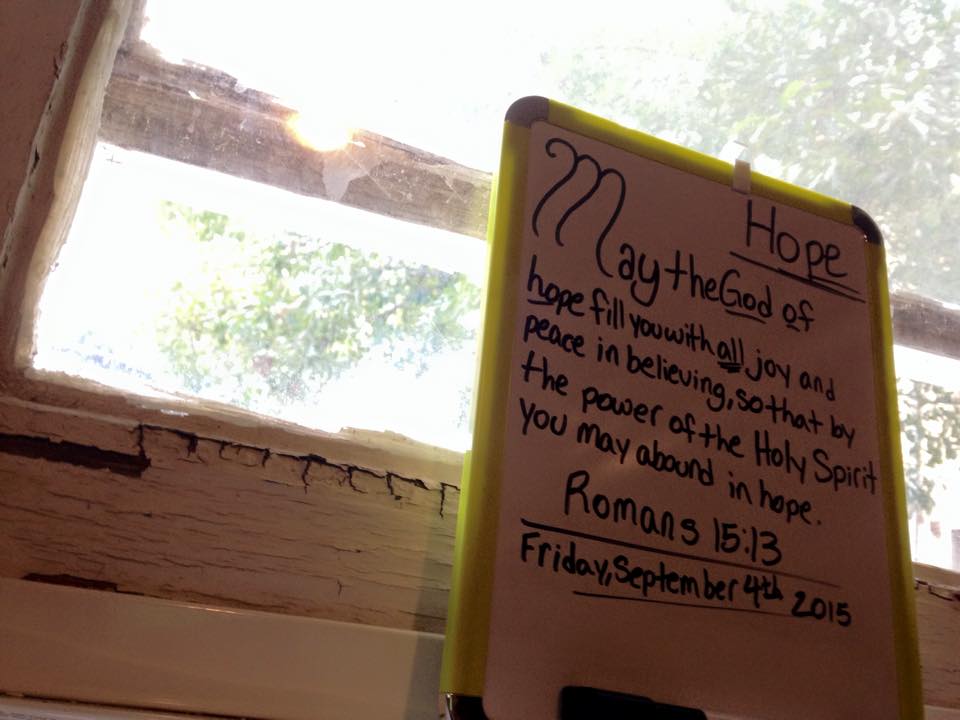 Hope
May the God of
hope fill you with all joy and
peace in believing, so that by
the power of the Holy Spirit
you may abound in hope.
Romans 15:13
Friday, September 4th 2015